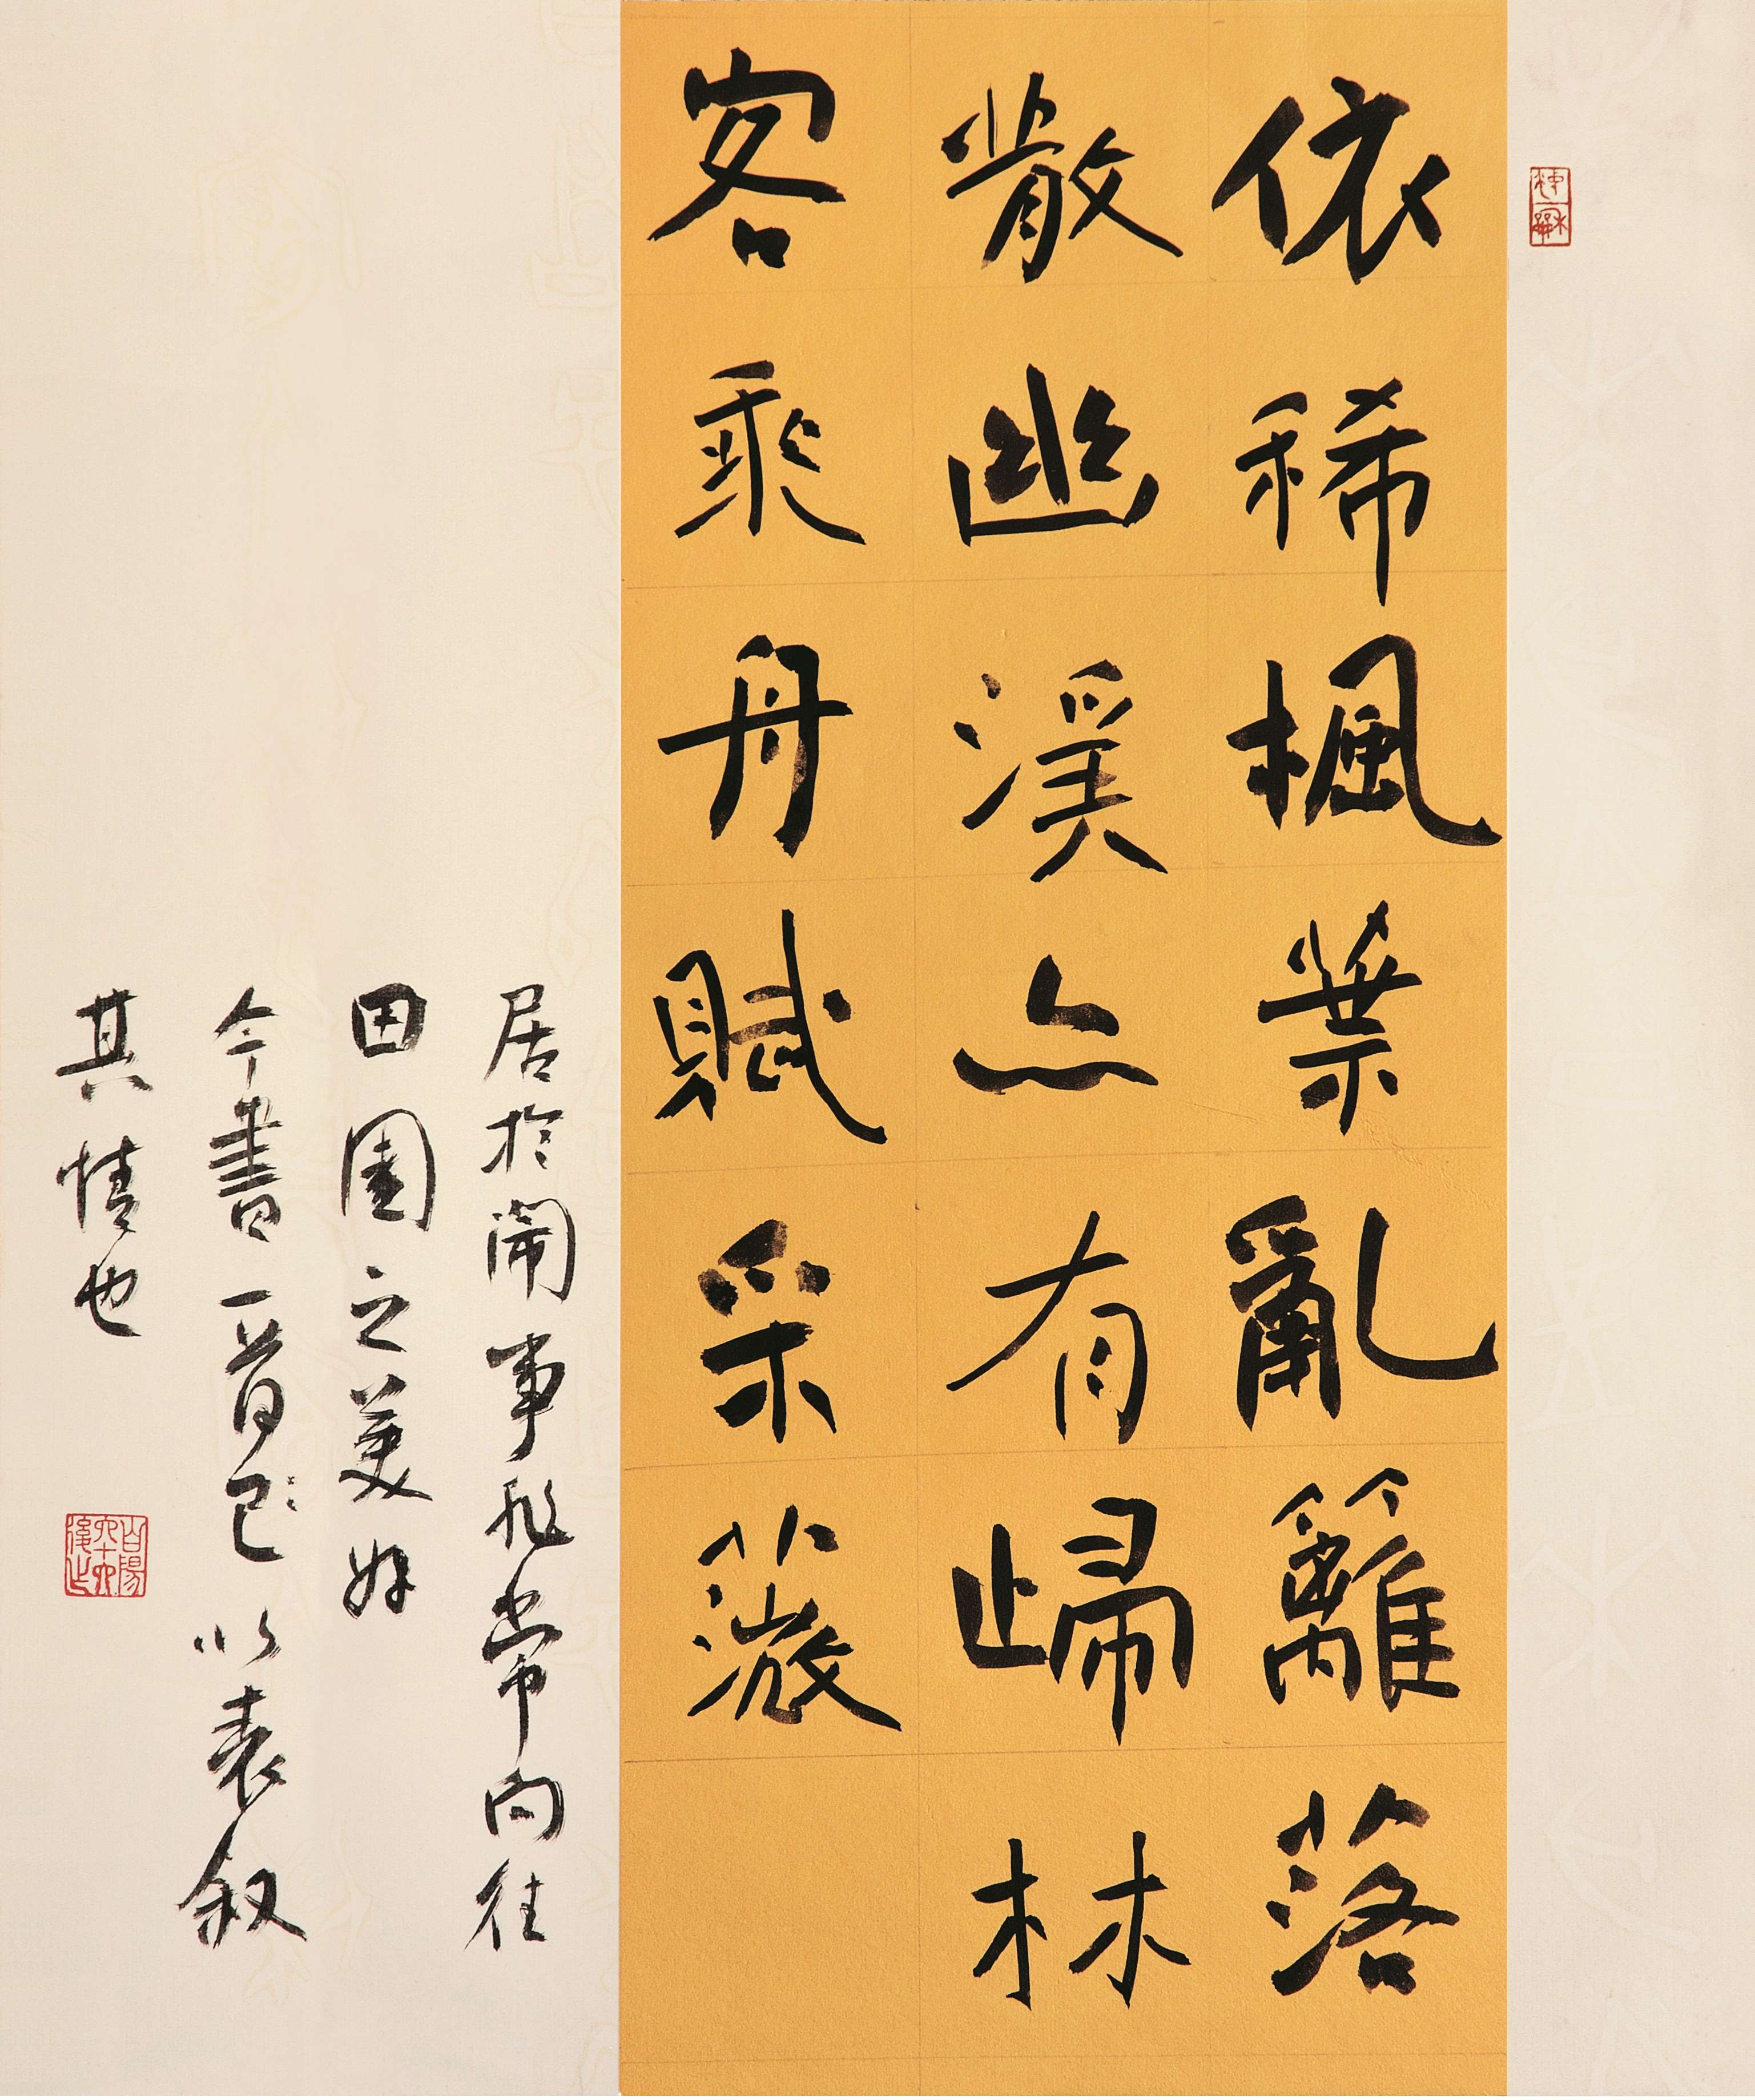 依稀楓葉亂籬落
散幽溪亦有歸林
客乘舟賦采薇
居於鬧事非常向往
田園之美好
今書一首已以表叙
其情也